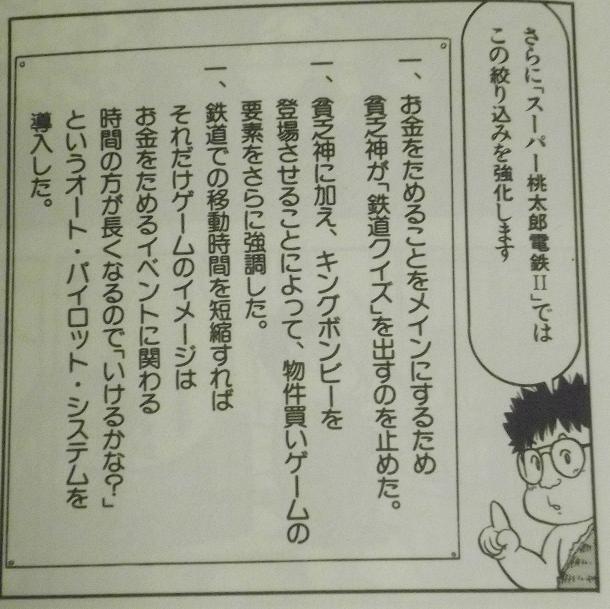 さらに「スーパー桃太郎電鉄II」では
この絞り込みを強化します
一、お金をためることをメインにするため
貧乏神が「鉄道クイズ」を出すのを止めた。
一、貧乏神に加え、キングボンビーを
登場させることによって、物件買いゲームの
要素をさらに強調した。
一、鉄道での移動時間を短縮すれば
それだけゲームのイメージは
お金をためるイベントに関わる
時間の方が長くなるので「いけるかな?」
というオート・パイロット・システムを
導入した。